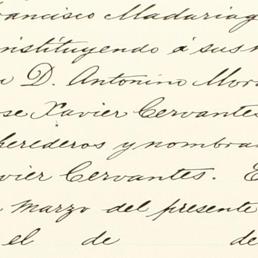 Francisco Madariaga
constituyendo á sus
D. Antonino Mor
Jose Xavier Cervantes
herederos y nombra
vier Cervantes. E
Marzo del presente
el de de